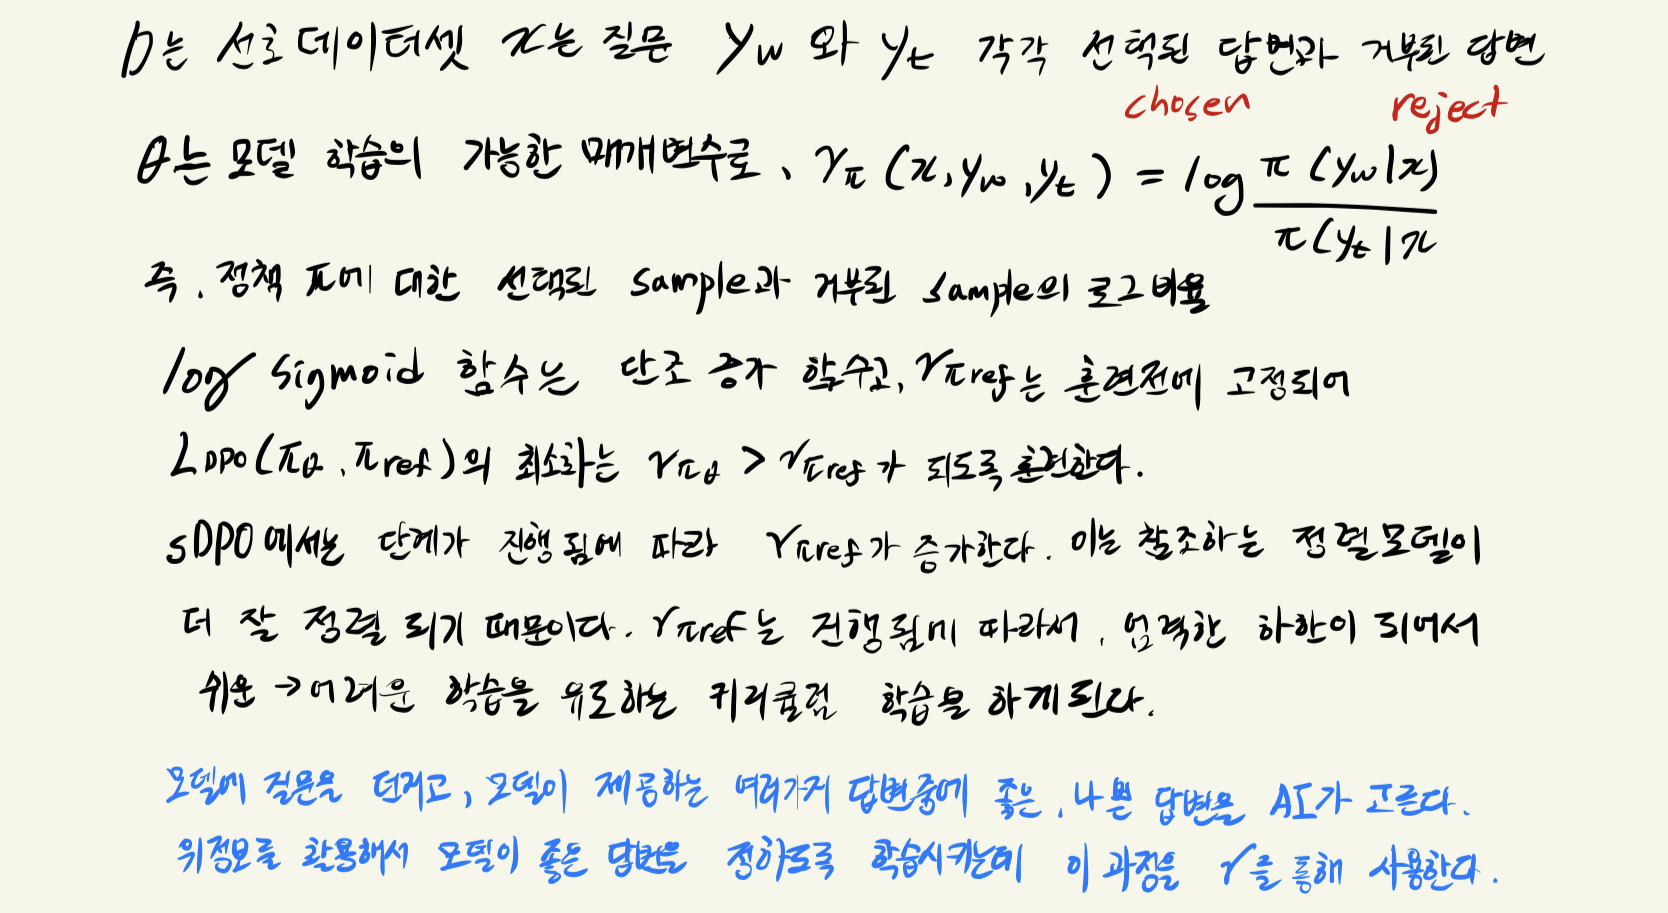 D는 선호데이터셋 x는 질문 yw 와 yt 각각 선택된 답변과 거부된 답변
chosen reject
θ는 모델 학습의 가능한 매개변수로, γπ (x, yw, yt) = log π(yw|x) / π(yt|x
즉, 정책 π에 대한 선택된 sample과 거부된 sample의 로그 비율
log sigmoid 함수는 단조 증가 함수고, γπref는 훈련전에 고정되어
LDPO(πθ, πref)의 최소화는 γπθ > γπref가 되도록 훈련한다.
sDPO에서는 단계가 진행 됨에 따라 γπref가 증가한다. 이는 참조하는 정렬모델이
더 잘 정렬 되기 때문이다. γπref는 진행됨에 따라서, 엄격한 하한이 되어서
쉬운 → 어려운 학습을 유도하는 커리큘럼 학습을 하게된다.
모델에 질문을 던지고, 모델이 제공하는 여러가지 답변중에 좋은, 나쁜 답변을 AI가 고른다.
위정보를 활용해서 모델이 좋은 답변을 정하도록 학습시키는데 이 과정을 γ를 통해 사용한다.